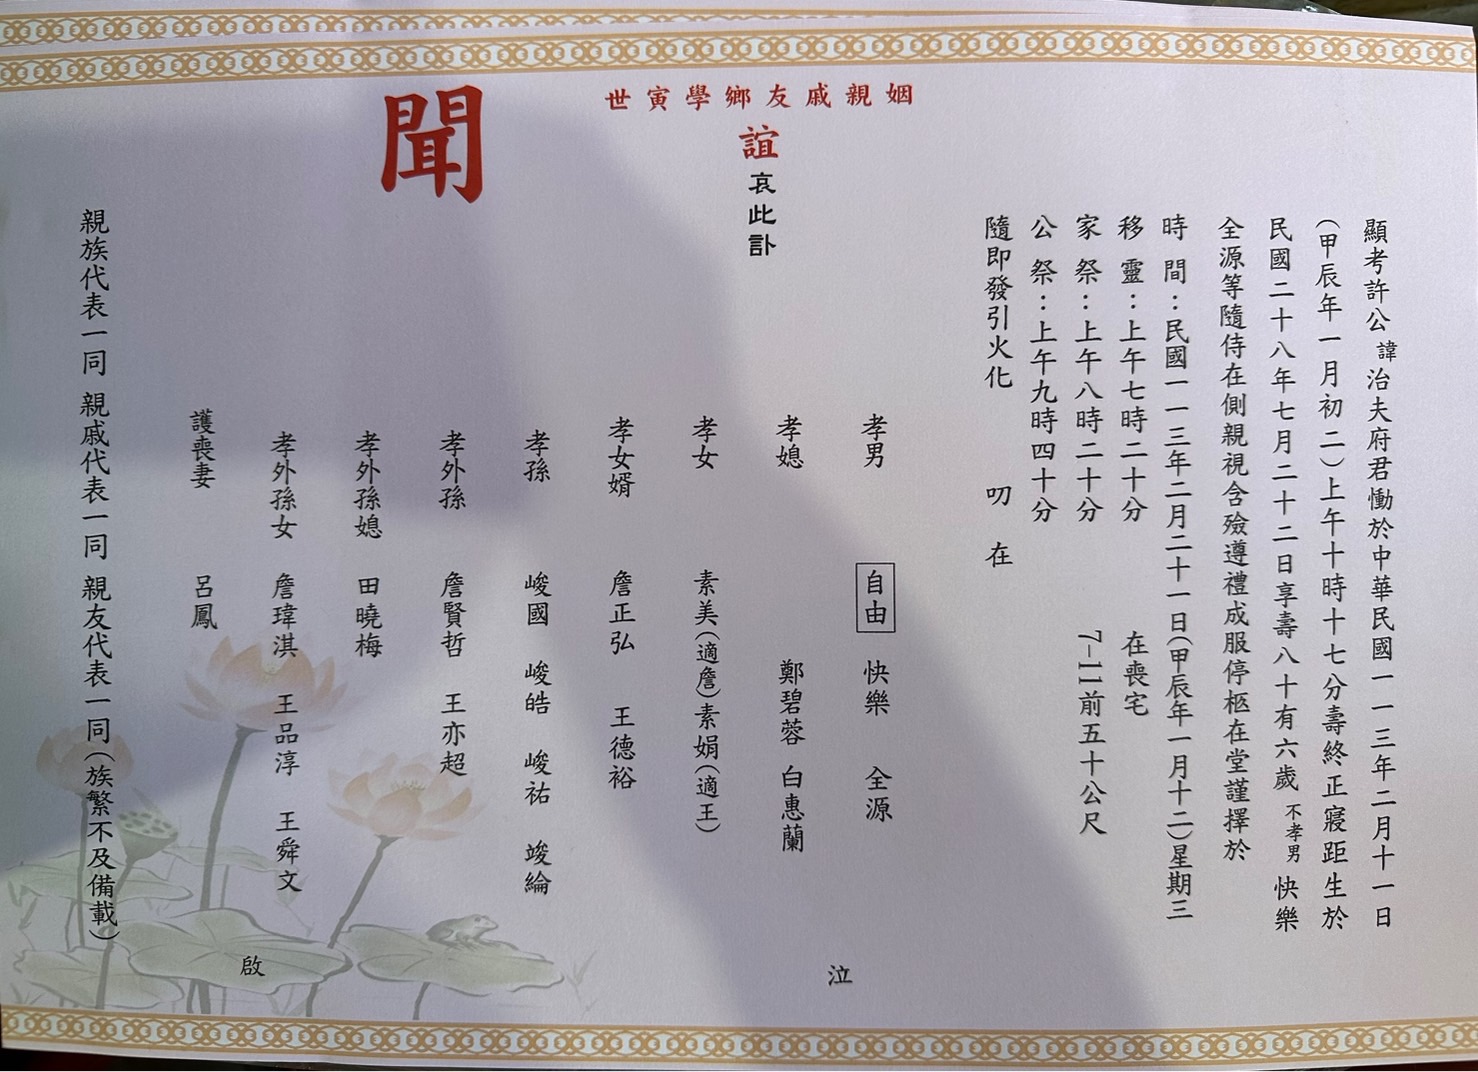 顯考許公諱治夫府君慟於中華民國一一三年二月十一日
(甲辰年一月初二)上午十時十七分壽終正寢距生於
民國二十八年七月二十二日享壽八十有六歲 不孝男 快樂
全源等隨侍在側親視含殮遵禮成服停柩在堂謹擇於
時間：民國一一三年二月二十一日(甲辰年一月十二)星期三
移靈：上午七時二十分 在喪宅
家祭：上午八時二十分 7-11前五十公尺
公祭：上午九時四十分
隨即發引火化 叨在
姻親戚友鄉學寅世
誼 哀此訃
聞
孝男 自由 快樂 全源
孝媳 鄭碧蓉 白惠蘭
泣
孝女 素美(適詹) 素娟(適王)
孝女婿 詹正弘 王德裕
孝孫 峻國 峻皓 峻祐 竣綸
孝外孫 詹賢哲 王亦超
孝外孫媳 田曉梅
孝外孫女 詹瑋淇 王品淳 王舜文
啟
護喪妻 呂鳳
親族代表一同 親戚代表一同 親友代表一同(族繁不及備載)